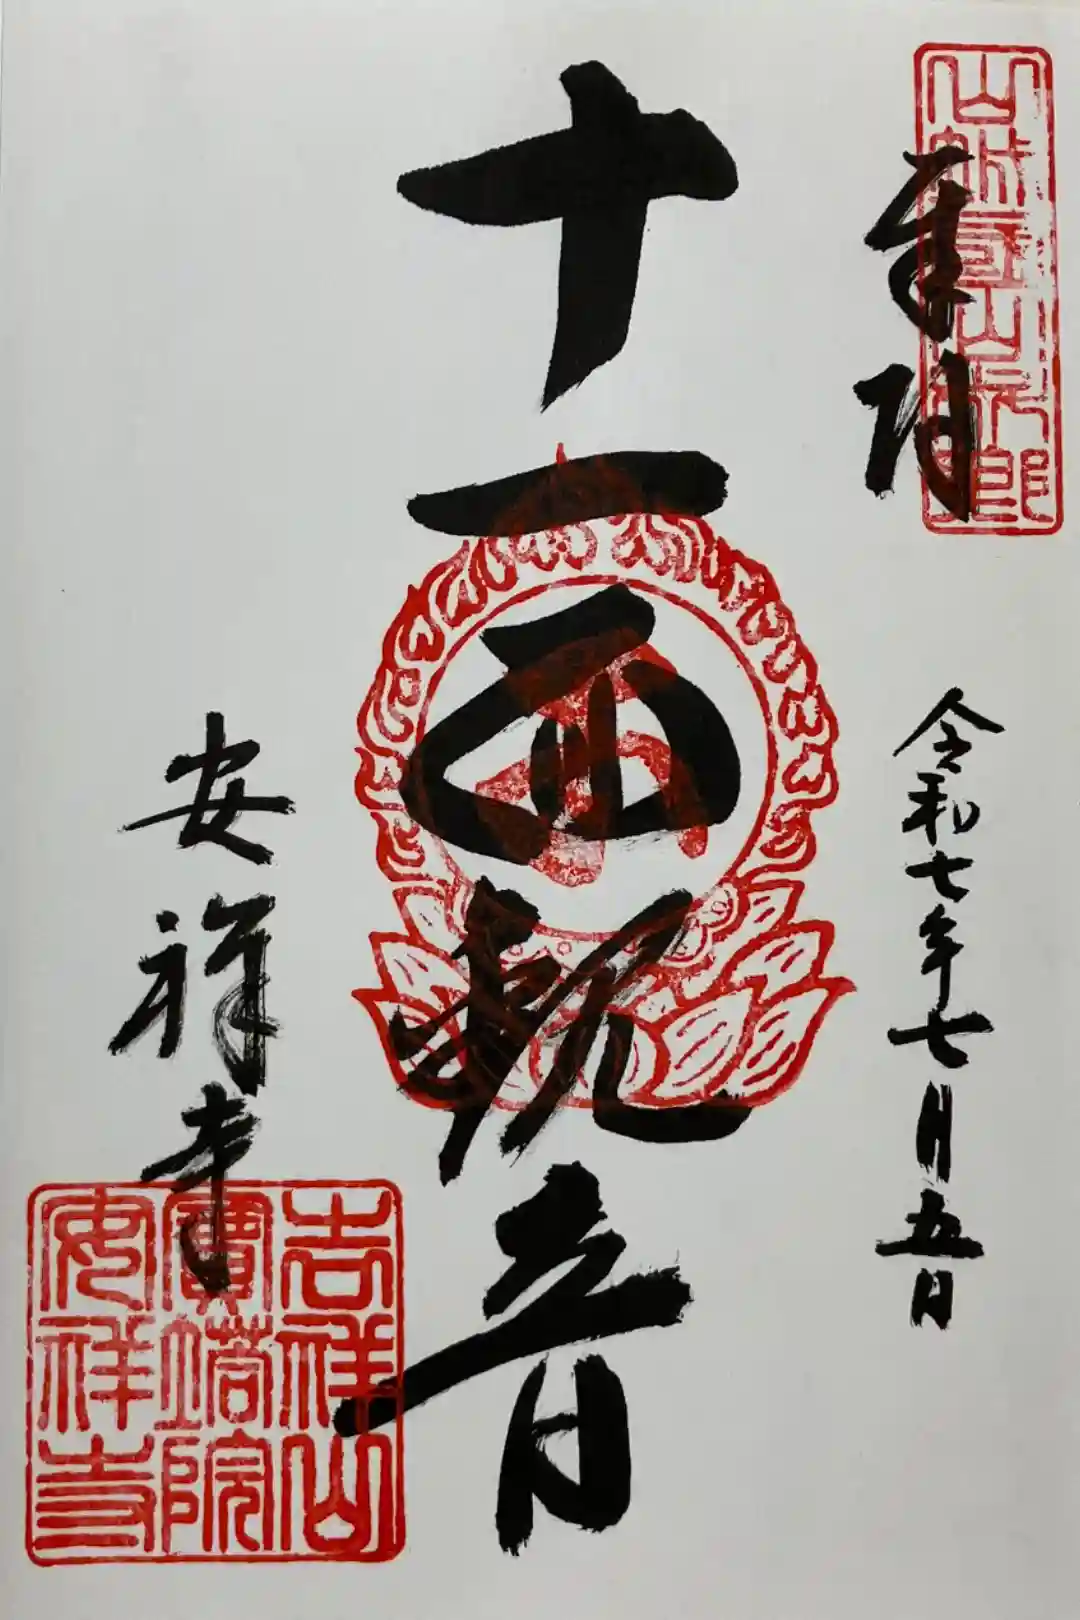 奉拝
山城國山科郷
令和七年七月五日
十一面観音
安祥寺
吉祥山
寶塔院
安祥寺